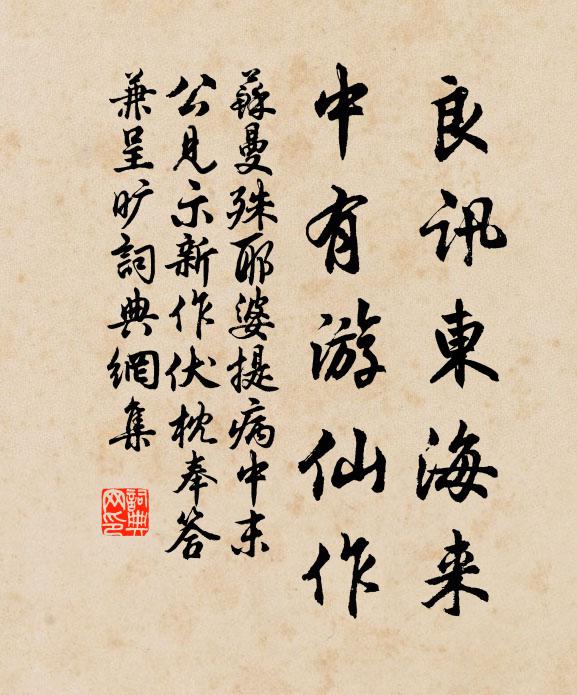 良訊東海来
中有游仙作
蘇曼殊耶婆提病中末
公見示新作伏枕奉答
兼呈旷詞典網集
詞典网印